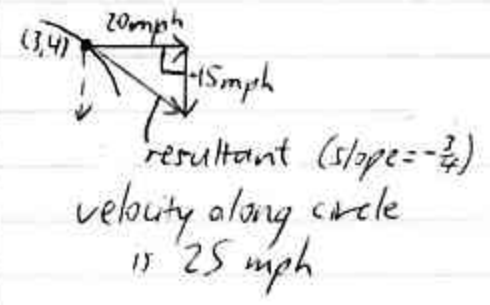 20mph
(3,4)
-15mph
resultant (slope = -3/4)
velocity along circle
is 25 mph